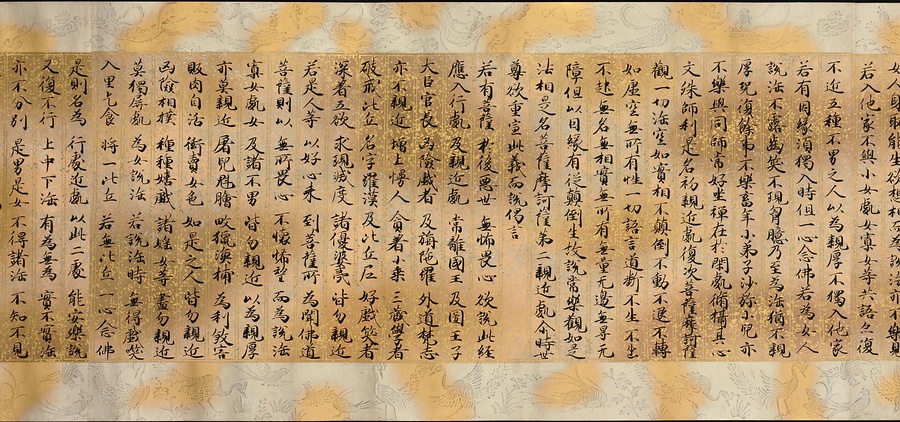 女人身取能生欲想相而為說法亦不樂見
若入他家不與小女處女寡女等共語亦復
不近五種不男之人以為親厚不獨入他家
若有因緣須獨入時但一心念佛若為女人
說法不露齒笑不現胸臆乃至為法猶不親
厚況復餘事不樂畜年少弟子沙弥小兒亦
不樂與同師常好坐禪在於閑處修攝其心
文殊師利是名初親近處復次菩薩摩訶薩
觀一切法空如實相不顛倒不動不退不轉
如虛空無所有性一切語言道斷不生不出
不起無名無相實無所有無量無邊無㝵無
障但以因緣有從顛倒生故說常樂觀如是
法相是名菩薩摩訶薩第二親近處尒時世
尊欲重宣此義而說偈言
若有菩薩 於後惡世 無怖畏心 欲說此經
應入行處 及親近處 常離國王 及國王子
大臣官長 凶險戲者 及旃陁羅 外道梵志
亦不親近 增上慢人 貪著小乘 三藏學者
破戒比丘 名字羅漢 及比丘尼 好戲笑者
深著五欲 求現滅度 諸優婆夷 皆勿親近
若是人等 以好心來 到菩薩所 為聞佛道
菩薩則以 無所畏心 不懷悕望 而為說法
寡女處女 及諸不男 皆勿親近 以為親厚
亦莫親近 屠兒魁膾 畋獵漁捕 為利殺害
販肉自活 衒賣女色 如是之人 皆勿親近
凶險相撲 種種嬉戲 諸婬女等 盡勿親近
莫獨屏處 為女說法 若說法時 無得戲笑
入里乞食 將一比丘 若無比丘 一心念佛
是則名為 行處近處 以此二處 能安樂說
又復不行 上中下法 有為無為 實不實法
亦不分別 是男是女 不得諸法 不知不見